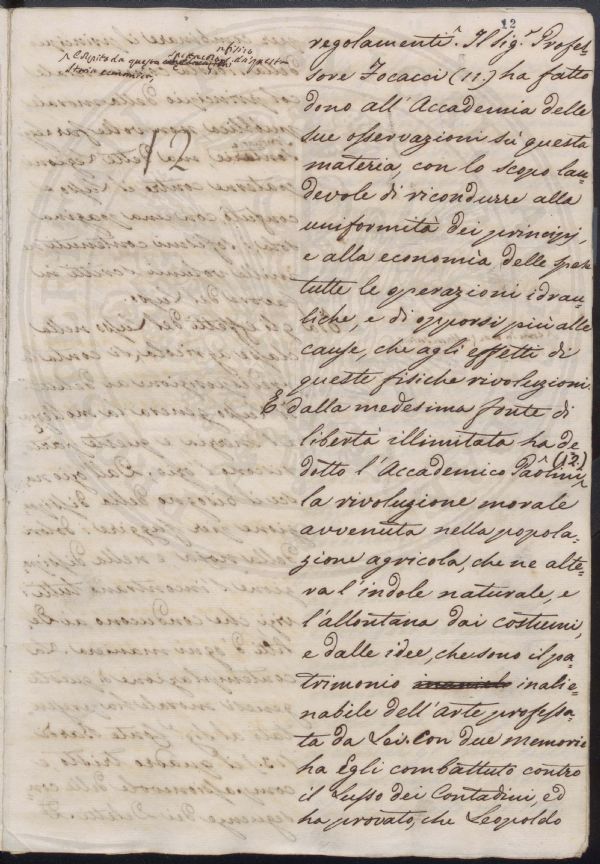 12
regolamenti. Il Sig.r Profes=
sore Focacci (11.) ha fatto
dono all'Accademia delle
sue osservazioni sù questa
materia, con lo scopo lau=
devole di ricondurre alla
uniformità dei principj,
e alla economia delle spese
tutte le operazioni idrau=
liche, e di opporsi più alle
cause, che agli effetti di
queste fisiche rivoluzioni.
E dalla medesima fonte di
libertà illimitata ha de
dotto l'Accademico Paolini (12.)
la rivoluzione morale
avvenuta nella popola=
zione agricola, che ne alte=
ra l'indole naturale, e
l'allontana dai costumi,
e dalle idee, che sono il pa=
trimonio inalie=
nabile dell'arte professa=
ta da Lei. Con due memorie
ha Egli combattuto contro
il Lusso dei Contadini, ed
ha provato, che Leopoldo
12